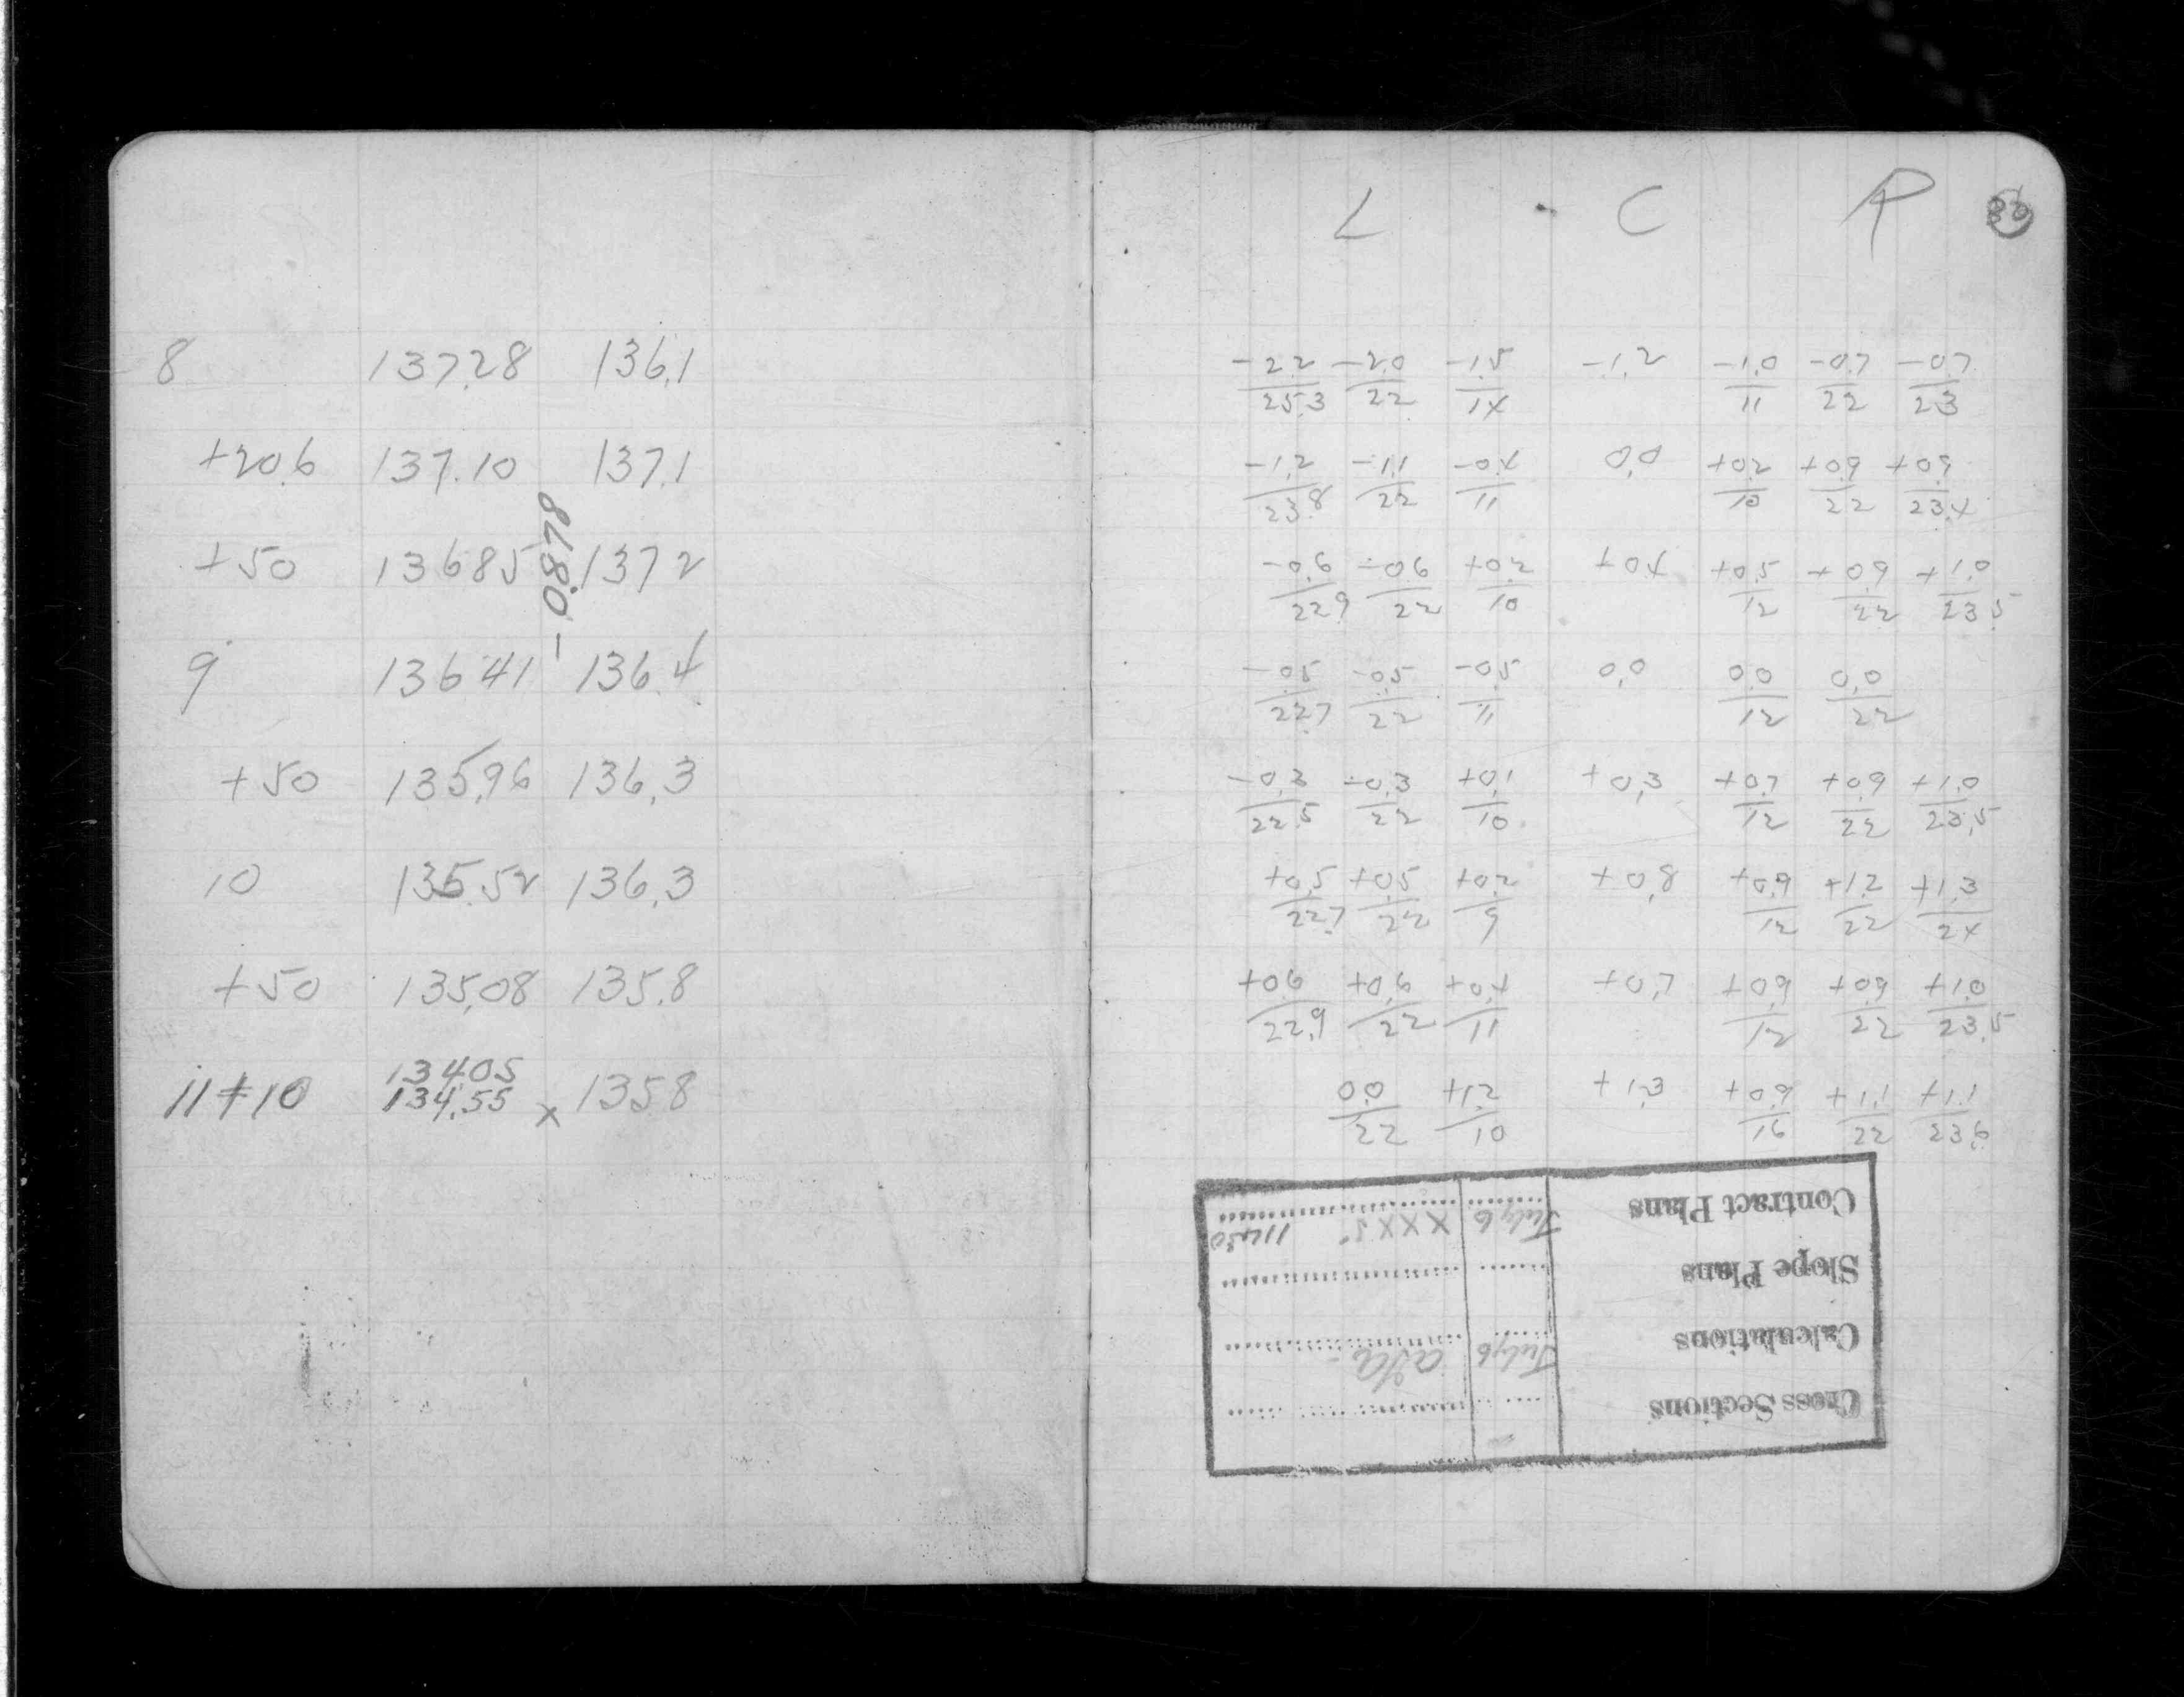 L C R
8 137.28 136.1 -2.2/25.3 -2.0/22 -1.5/14 -1.2 -1.0/11 -0.7/22 -0.7/23
+20.6 137.10 137.1 -1.2/23.8 -1.1/22 -0.4/11 0.0 +0.2/10 +0.9/22 +0.9/23.4
+50 136.85 137.2 -0.6/22.9 -0.6/22 +0.2/10 +0.4 +0.5/12 +0.9/22 +1.0/23.5
-0.878
9 136.41 136.4 -0.5/22.7 -0.5/22 -0.5/11 0.0 0.0/12 0.0/22
+50 135.96 136.3 -0.3/22.5 -0.3/22 +0.1/10 +0.3 +0.7/12 +0.9/22 +1.0/23.5
10 135.52 136.3 +0.5/22.7 +0.5/22 +0.2/9 +0.8 +0.9/12 +1.2/22 +1.3/24
+50 135.08 135.8 +0.6/22.9 +0.6/22 +0.4/11 +0.7 +0.9/12 +0.9/22 +1.0/23.5
134.05
11+10 134.55 x 135.8 0.0/22 +1.2/10 +1.3 +0.9/16 +1.1/22 +1.1/23.6
Cross Sections
Calculations July 6
Slope Plans
Contract Plans July 6 XXX 11430